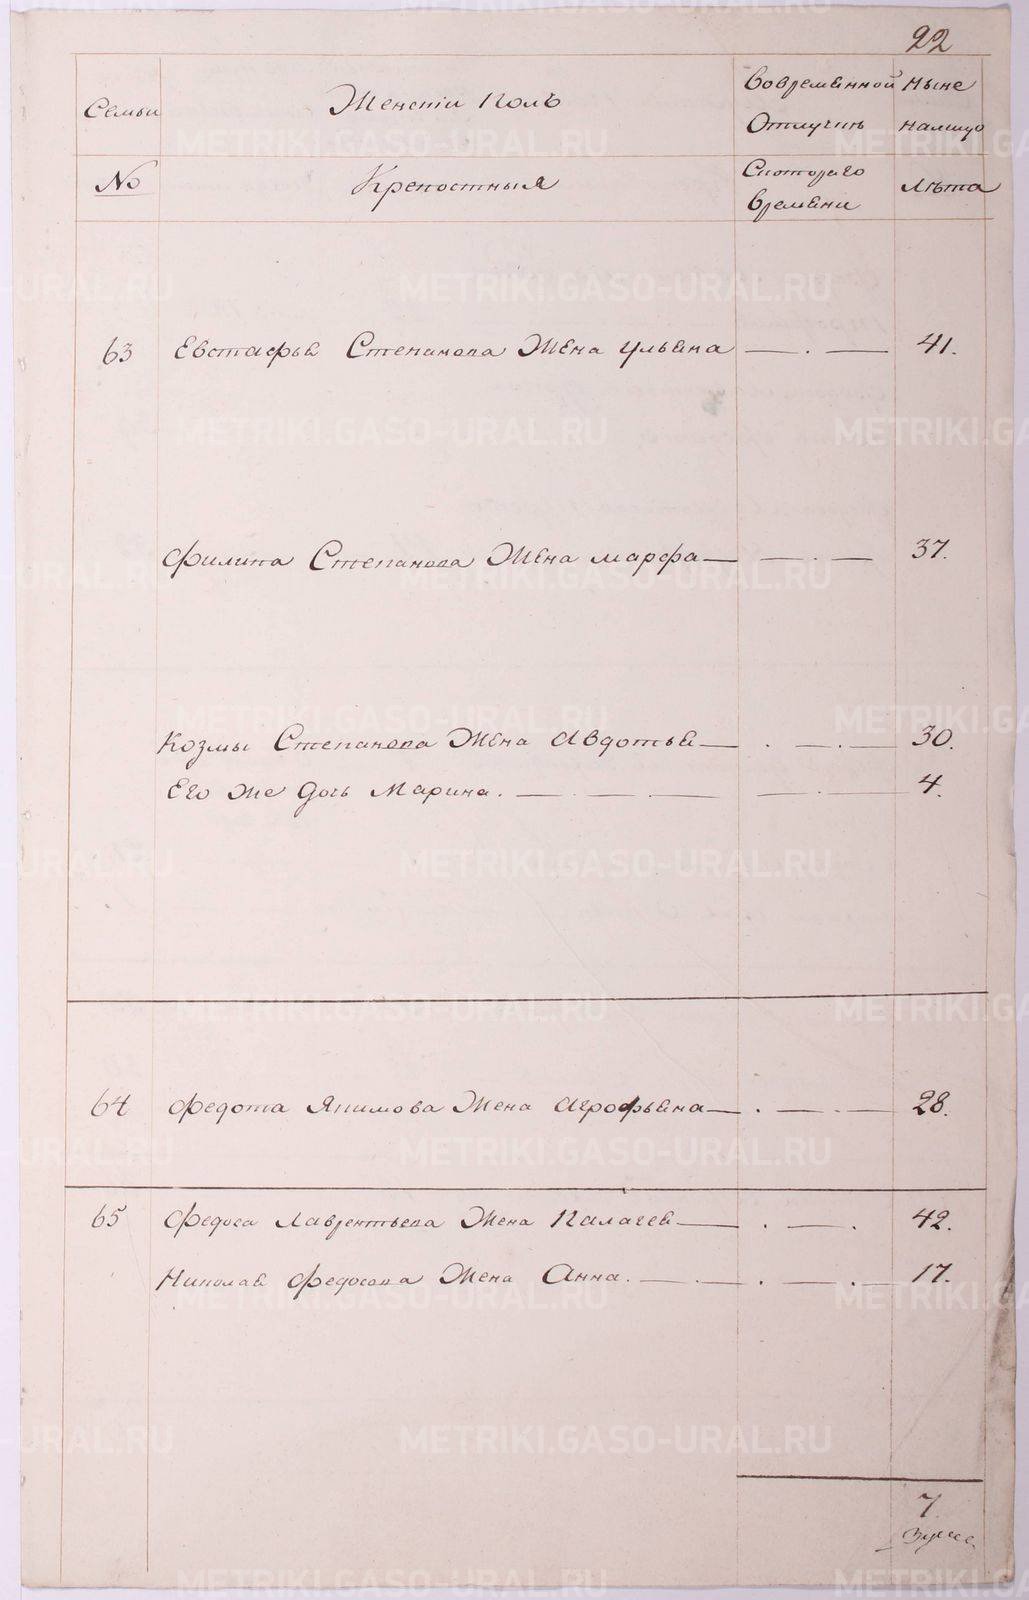 22
Семьи Женскiи полъ Вовременной Ныне
Отлучке налицо
№ Крепостныя Скотораго Лѣта
времени
63 Евстафья Степанова Жена Ульяна — . — 41.
Филипа Степанова Жена Марфа — — . — 37.
Козмы Степанова Жена Авдотья — . — . — 30.
Его же дочь Марина. — . — . — — . — 4.
64 Федота Якимова Жена Агрофьена — . — . — 28.
65 Федоса Лаврентьева Жена Палагея — . — . 42.
Николая Федосова Жена Анна. — . — . — . — 17.
7
METRIKI.GASO-URAL.RU